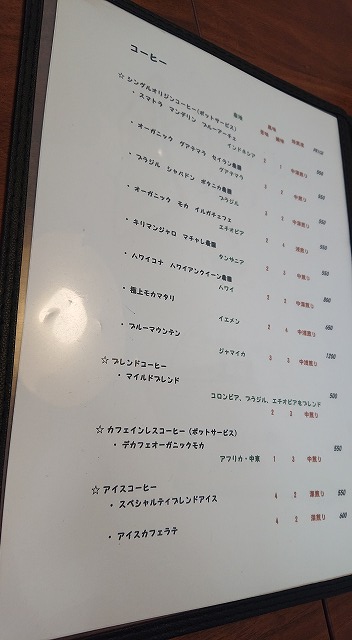 コーヒー
☆ シングルオリジンコーヒー(ポットサービス)
・スマトラ マンデリン ブルーアーチェ
インドネシア 中深煎り
・オーガニック グアテマラ セイラン農園
グアテマラ 3 2 中煎り 550
・ブラジル シャパドン ボタニカ農園
ブラジル 3 2 中煎り 550
・オーガニック モカ イルガチェフェ
エチオピア 2 4 550
・キリマンジャロ マチャレ農園
タンザニア 2 3 中煎り 550
・ハワイコナ ハワイアンクイーン農園
ハワイ 2 3 中煎り 800
・極上モカマタリ
イエメン 2 4 中深煎り 650
・ブルーマウンテン
ジャマイカ 3 3 中深煎り 1200
☆ ブレンドコーヒー
・マイルドブレンド 500
コロンビア、ブラジル、エチオピアをブレンド
2 3 中煎り
☆ カフェインレスコーヒー(ポットサービス)
・デカフェオーガニックモカ 550
アフリカ・中東 1 3 中煎り
☆ アイスコーヒー
・スペシャルティブレンドアイス 4 2 深煎り 550
・アイスカフェラテ 4 2 深煎り 600